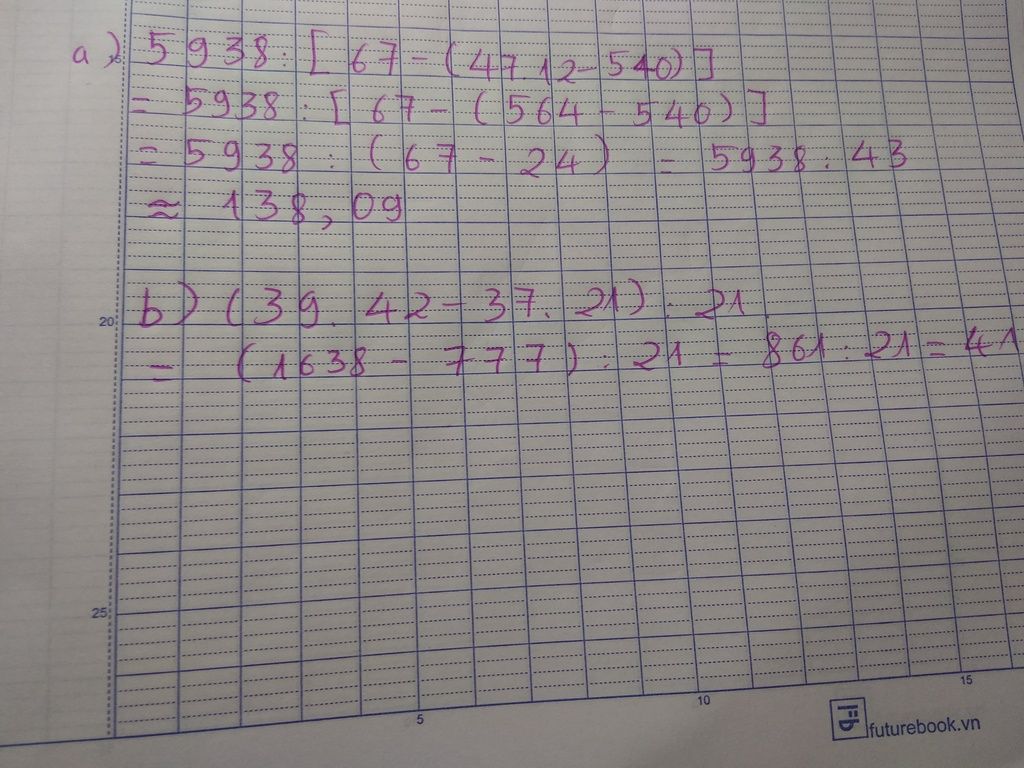 a) 5938 : [ 67 - (47.12 - 540) ]
= 5938 : [ 67 - (564 - 540) ]
= 5938 : (67 - 24) = 5938 : 43
≈ 138,09
b) (39. 42 - 37. 21) : 21
= (1638 - 777) : 21 = 861 : 21 = 41
20
25
5
10
15
futurebook.vn